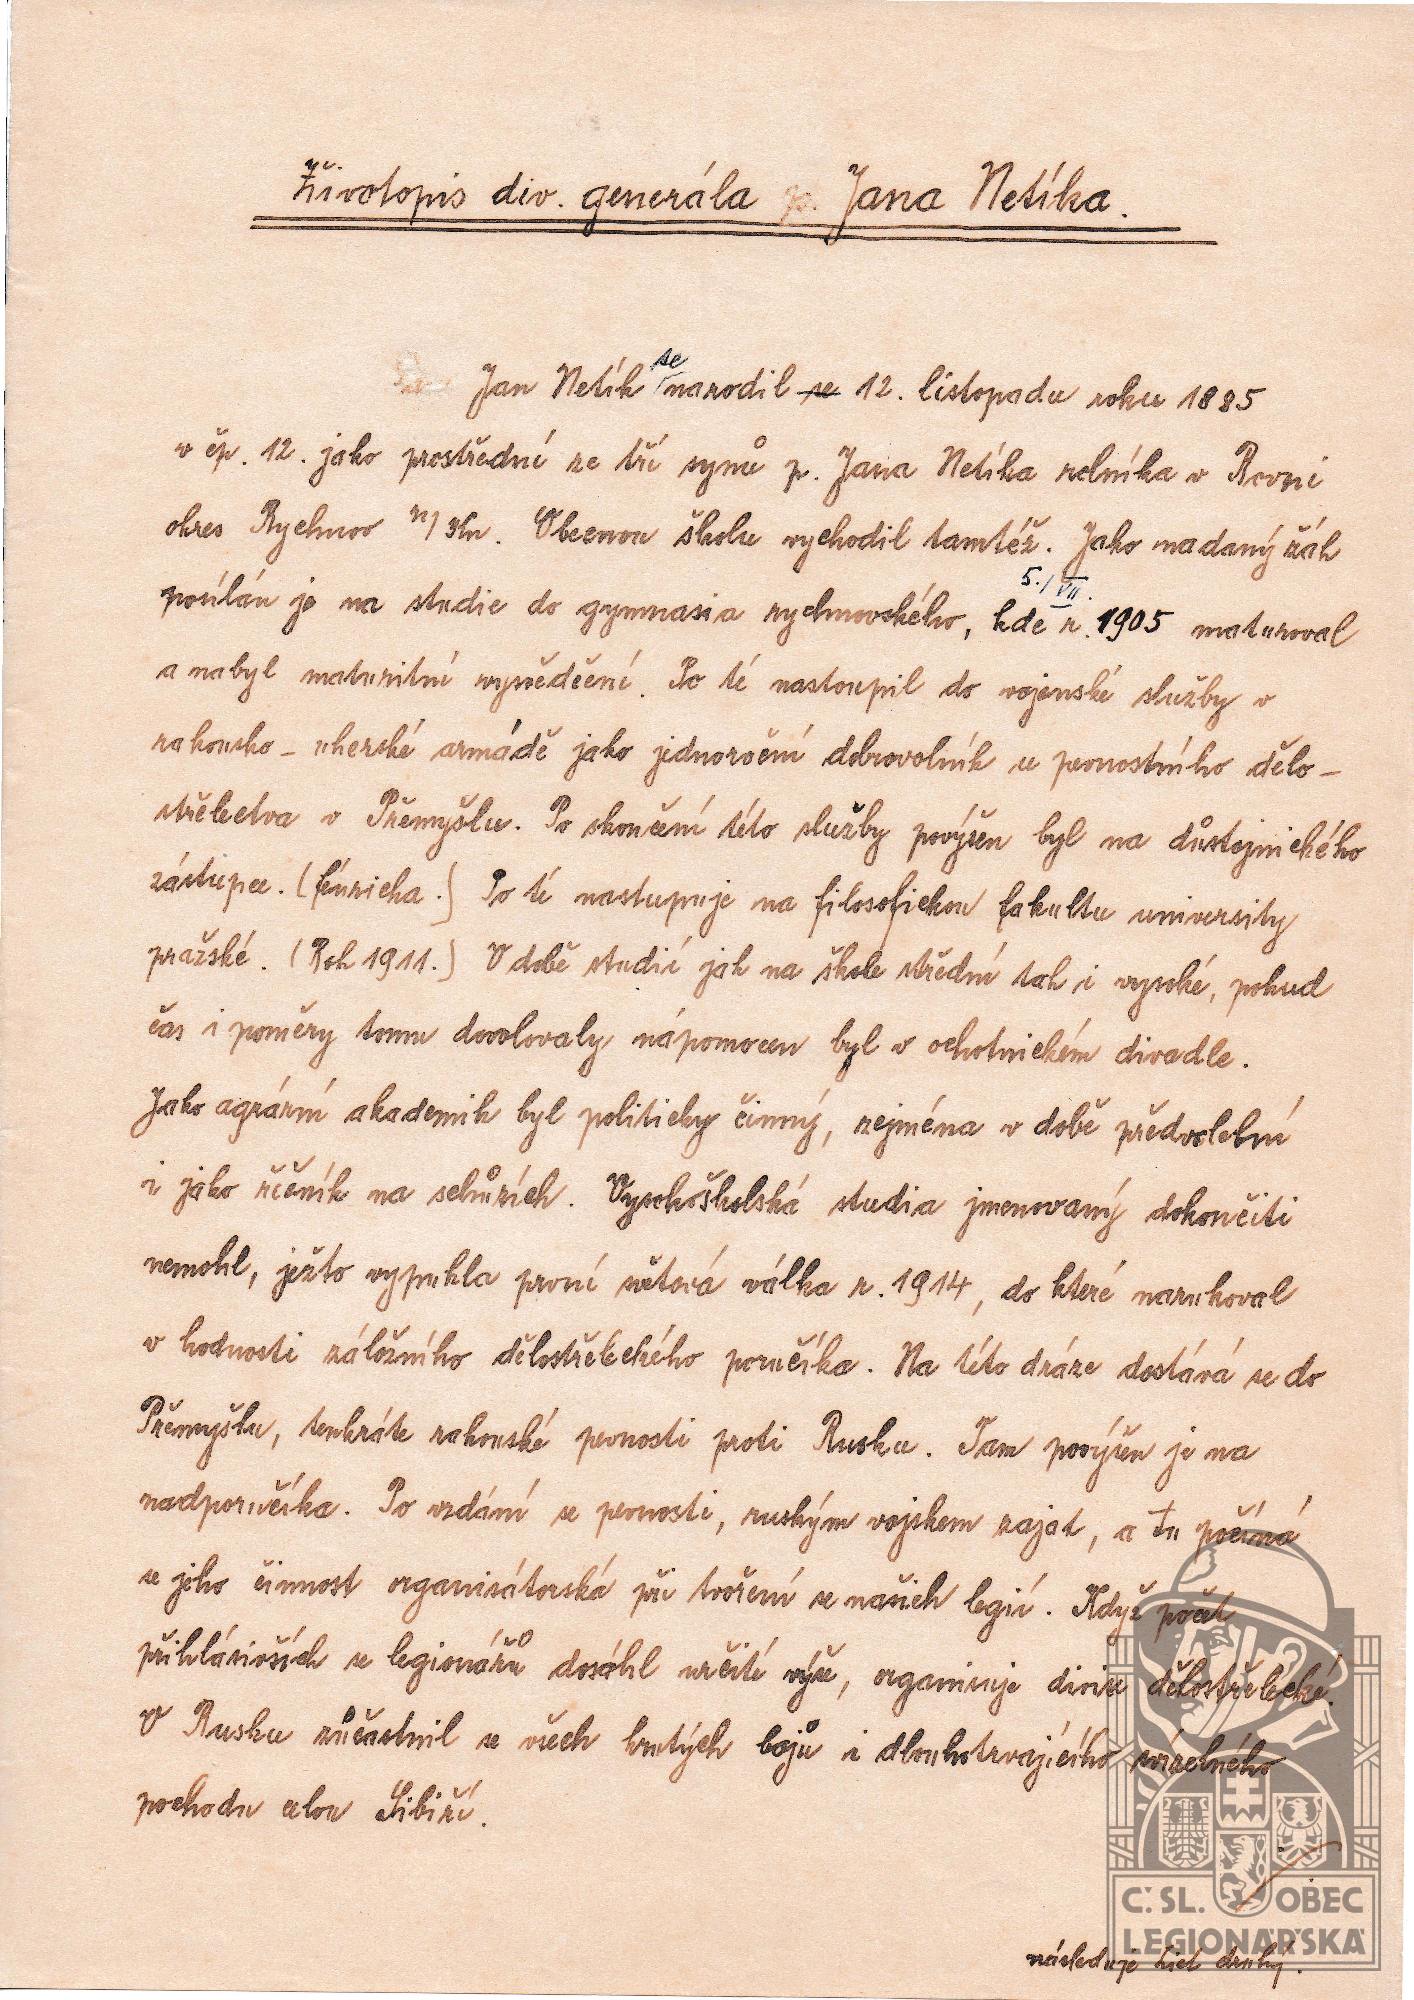 Životopis div. generála p. Jana Netíka.
Jan Netík se narodil se 12. listopadu roku 1885
v čp. 12. jako prostřední ze tří synů p. Jana Netíka rolníka v Rovni
okres Rychnov n/Kn. Obecnou školu vychodil tamtéž. Jako nadaný žák
posílán je na studie do gymnasia rychnovského, kde 5./VII. r. 1905 maturoval
a nabyl maturitní vysvědčení. Po té nastoupil do vojenské služby v
rakousko - uherské armádě jako jednoroční dobrovolník u pevnostního dělo-
střelectva v Přemyšlu. Po skončení této služby povýšen byl na důstojnického
zástupce. (fénricha.) Po té nastupuje na filosofickou fakultu university
pražské. (Rok 1911.) V době studií jak na škole střední tak i vysoké, pokud
čas i poměry tomu dovolovaly nápomocen byl v ochotnickém divadle.
Jako agrární akademik byl politicky činný, zejména v době předvolební
i jako řečník na schůzích. Vysokoškolská studia jmenovaný dokončiti
nemohl, ježto vypukla první světová válka r. 1914, do které narukoval
v hodnosti záložního dělostřeleckého poručíka. Na této dráze dostává se do
Přemyšlu, tenkráte rakouské pevnosti proti Rusku. Tam povýšen je na
nadporučíka. Po vzdání se pevnosti, ruským vojskem zajat, a tu počíná
se jeho činnost organisátorská při tvoření se našich legií. Když počet
přihlásivších se legionářů dosáhl určité výše, organisuje divise dělostřelecké.
V Rusku zúčastnil se všech krutých bojů i dlouhotrvajícího svízelného
pochodu celou Sibiří.
následuje list druhý.
Č. SL. OBEC
LEGIONÁŘSKÁ